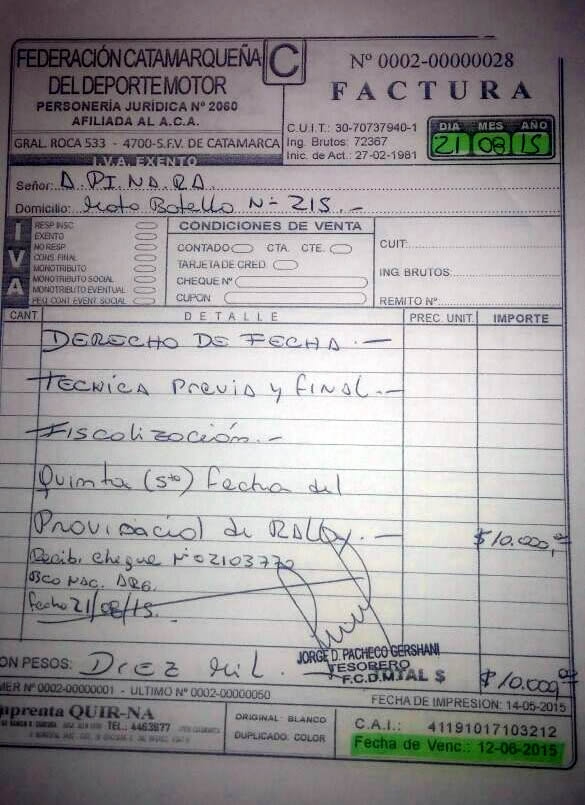 FEDERACIÓN CATAMARQUEÑA
DEL DEPORTE MOTOR
PERSONERÍA JURÍDICA Nº 2060
AFILIADA AL A.C.A.
GRAL. ROCA 533 - 4700-S.F.V. DE CATAMARCA
I.V.A. EXENTO
C
Nº 0002-00000028
FACTURA
C.U.I.T.: 30-70737940-1
Ing. Brutos: 72367
Inic. de Act.: 27-02-1981
DIA MES AÑO
21 08 15
Señor: A.PI.NA.RA.
Domicilio: Moto Botello Nº 215.-
IVA
RESP INSC
EXENTO
NO RESP
CONS. FINAL
MONOTRIBUTO
MONOTRIBUTO SOCIAL
MONOTRIBUTO EVENTUAL
PEQ CONT EVENT SOCIAL
CONDICIONES DE VENTA
CONTADO CTA. CTE.
TARJETA DE CRED.
CHEQUE Nº
CUPON
CUIT:
ING. BRUTOS:
REMITO Nº
CANT DETALLE PREC. UNIT. IMPORTE
DERECHO DE FECHA.-
TECNICA Previa y final.-
Fiscalización.-
Quinta (5ta) Fecha del
Provinacial de RALLY.- $10.000,
Recibi cheque Nº 02103770
BCO NAC. ARG.
fecha 21/08/15.
JORGE D. PACHECO GERSHANI
TESORERO
F.C.D.M.
ON PESOS: Diez mil.- TAL $ $10.000
MER Nº 0002-00000001 - ULTIMO Nº 0002-00000050
FECHA DE IMPRESION: 14-05-2015
mprenta QUIR-NA
TEL.: 4453877
ORIGINAL: BLANCO
DUPLICADO: COLOR
C.A.I.: 41191017103212
Fecha de Venc.: 12-06-2015